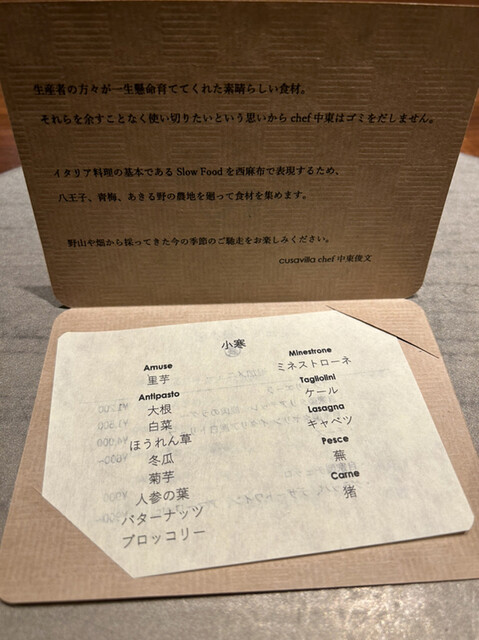 生産者の方々が一生懸命育ててくれた素晴らしい食材。
それらを余すことなく使い切りたいという思いから chef 中東はゴミをだしません。
イタリア料理の基本である Slow Food を西麻布で表現するため、
八王子、青梅、あきる野の農地を廻って食材を集めます。
野山や畑から採ってきた今の季節のご馳走をお楽しみください。
cusavilla chef 中東俊文
小寒
Amuse
里芋
Antipasto
大根
白菜
ほうれん草
冬瓜
菊芋
人参の葉
バターナッツ
ブロッコリー
Minestrone
ミネストローネ
Tagliolini
ケール
Lasagna
キャベツ
Pesce
蕪
Carne
猪